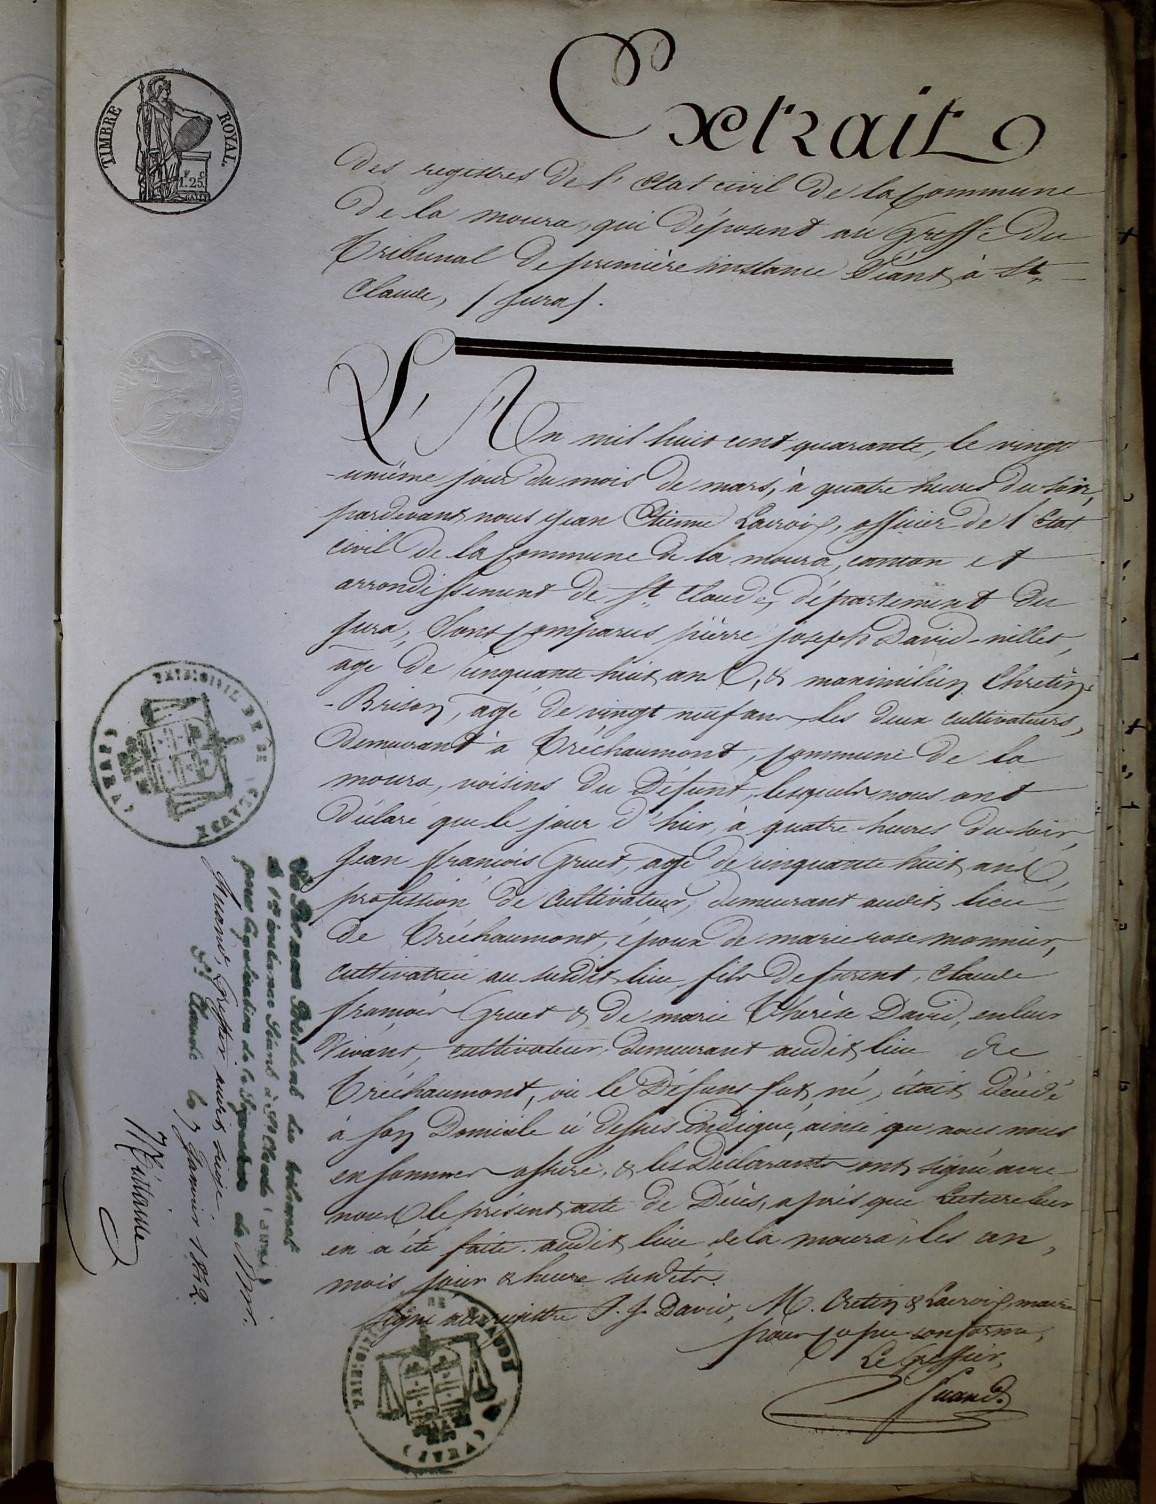 Extrait
TIMBRE ROYAL.
1.25
des registres de l'Etat civil de la Commune
de la moura, qui déposent au Greffe du
Tribunal de première instance Séant à St.
Claude, (jura).
L'An mil huit cent quarante, le vingt
-unième jour du mois de mars, à quatre heures du soir,
pardevant nous jean Etienne Lacroix, officier de l'Etat
civil de la Commune de la moura, canton et
arrondissement de St Claude, département du
jura, Sont Comparus pierre joseph David-nillet,
âgé de cinquante huit ans, & maximilien Chretin-
-Brison, agé de vingt neuf ans les deux cultivateurs,
demeurant à Tréchaumont, Commune de la
moura, voisins du Défunt, lesquels nous ont
Déclaré que le jour d'hier, à quatre heures du soir,
jean françois Gruet, agé de cinquante huit ans,
profession de Cultivateur, demeurant audit lieu
de Tréchaumont, époux de marie rose monnier,
cultivatrice au susdit lieu fils de furent, Claude
françois Gruet & de marie Thérèse David, en leur
Vivant, cultivateurs, demeurant audit lieu de
Tréchaumont, où le Défunt fut né, était Décédé
à son Domicile ci dessus indiqué, ainsi que nous nous
en sommes assuré, & les Déclarants ont signé avec
nous le présent acte de Décès, après que Lecture leur
en a été faite. audit lieu de la moura, les an,
mois jour & heure susdits.
Signé au registre P. J. David, M. Cretin & Lacroix, maire
pour Copie conforme,
Le Greffier,
Juand
TRIB: CIVIL DE ST CLAUDE (JURA)
Vu Par nous Président du tribunal
de 1re instance Séant à St Claude (jura)
pour Légalisation de la Signature de Mr.
Juand, Greffier audit siège.
St Claude le 7 Janvier 1842.
TRIB: CIVIL DE ST CLAUDE (JURA)